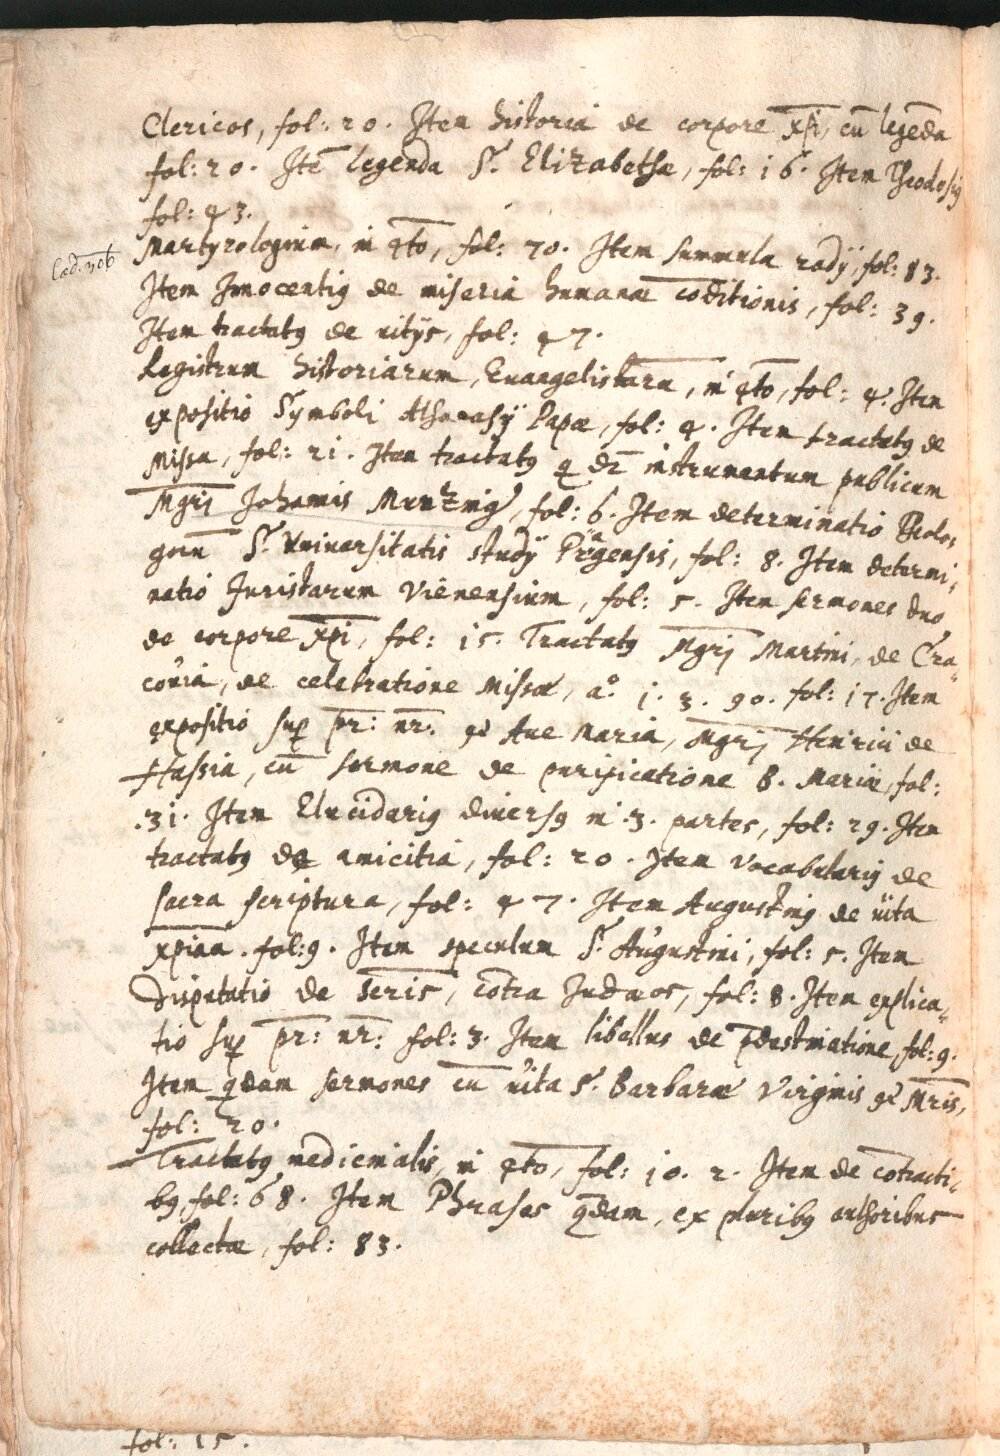 Clericos, fol: 20. Item historia de corpore xp̄i, cū legēda
fol: 20. Itē legenda S. Elizabethæ, fol: 16. Item Theodosiꝰ
fol: 43.
Cod. 306
Martyrologium, in 4to, fol: 70. Item summula rudÿ, fol: 83.
Item Innocentiꝰ de miseria humanæ cōditionis, fol: 39.
Item tractatꝰ de uitÿs, fol: 47.
Registrum historiarum, Euangelistaru, in 4to, fol: 4. Item
expositio Symboli Athanasÿ Papæ, fol: 4. Item tractatꝰ de
Missa, fol: 21. Item tractatꝰ q dr̄ instrumentum publicum
Mgrj Johannis Muntzing, fol: 6. Item determinatio Theolo=
gorū S. Vniuersitatis studÿ Prägensis, fol: 8. Item determi=
natio Juristarum Viēnensium, fol: 5. Item sermones duo
de corpore xp̄i, fol: 15. Tractatꝰ Mgrj Martini, de Cra=
couia, de celebratione Missæ, a.º 1. 3. 90. fol: 17. Item
expositio suꝑ pr̄: nr̄: et Aue Maria, Mgrj Henrici de
Hassia, cū sermone de purificatione B. Mariæ, fol:
.31. Item Elucidariꝰ diuersꝰ in .3. partes, fol: 29. Item
tractatꝰ de amicitia, fol: 20. Item Vocabulariꝰ de
sacra scriptura, fol: 47. Item Augustinꝰ de uita
xp̄iana. fol: 9. Item speculum S. Augustini, fol: 5. Item
Disputatio de cōtra Judæos, fol: 8. Item explica=
tio suꝑ pr̄: nr̄: fol: 3. Item libellus de p̄destinatione, fol: 9.
Item q̄dam sermones cū uita S. Barbaræ Virginis et Mr̄is,
fol: 20.
Tractatꝰ medicinalis, in 4to, fol: 10. 2. Item de cōtracti=
bꝰ, fol: 68. Item Phrases q̄dam, ex pluribꝰ authoribus
collectæ, fol: 83.
fol: 15.